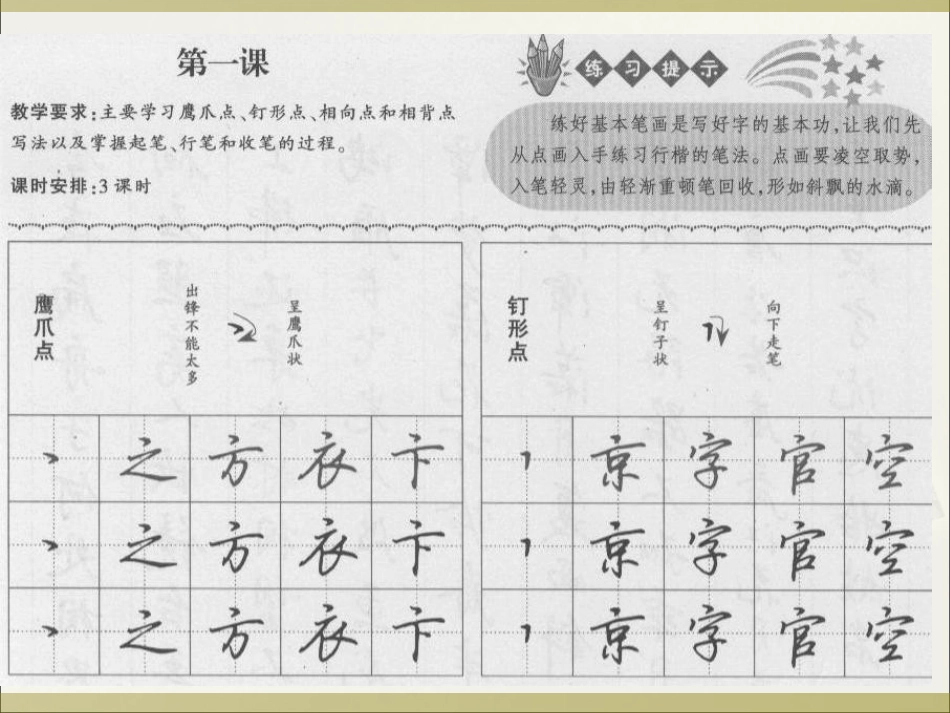 第一课
教学要求:主要学习鹰爪点、钉形点、相向点和相背点
写法以及掌握起笔、行笔和收笔的过程。
课时安排:3 课时
练习提示
练好基本笔画是写好字的基本功,让我们先
从点画入手练习行楷的笔法。点画要凌空取势,
入笔轻灵,由轻渐重顿笔回收,形如斜飘的水滴。
鹰爪点
出锋不能太多
呈鹰爪状
钉形点
呈钉子状
向下走笔
丶 之 方 衣 卞
丶 之 方 衣 卞
丶 之 方 衣 卞
丶 京 字 官 空
丶 京 字 官 空
丶 京 字 官 空